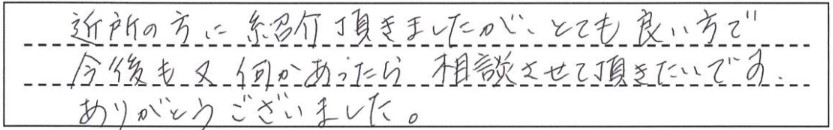 近所の方に紹介頂きましたが、とても良い方で
今後も又何かあったら相談させて頂きたいです.
ありがとうございました。